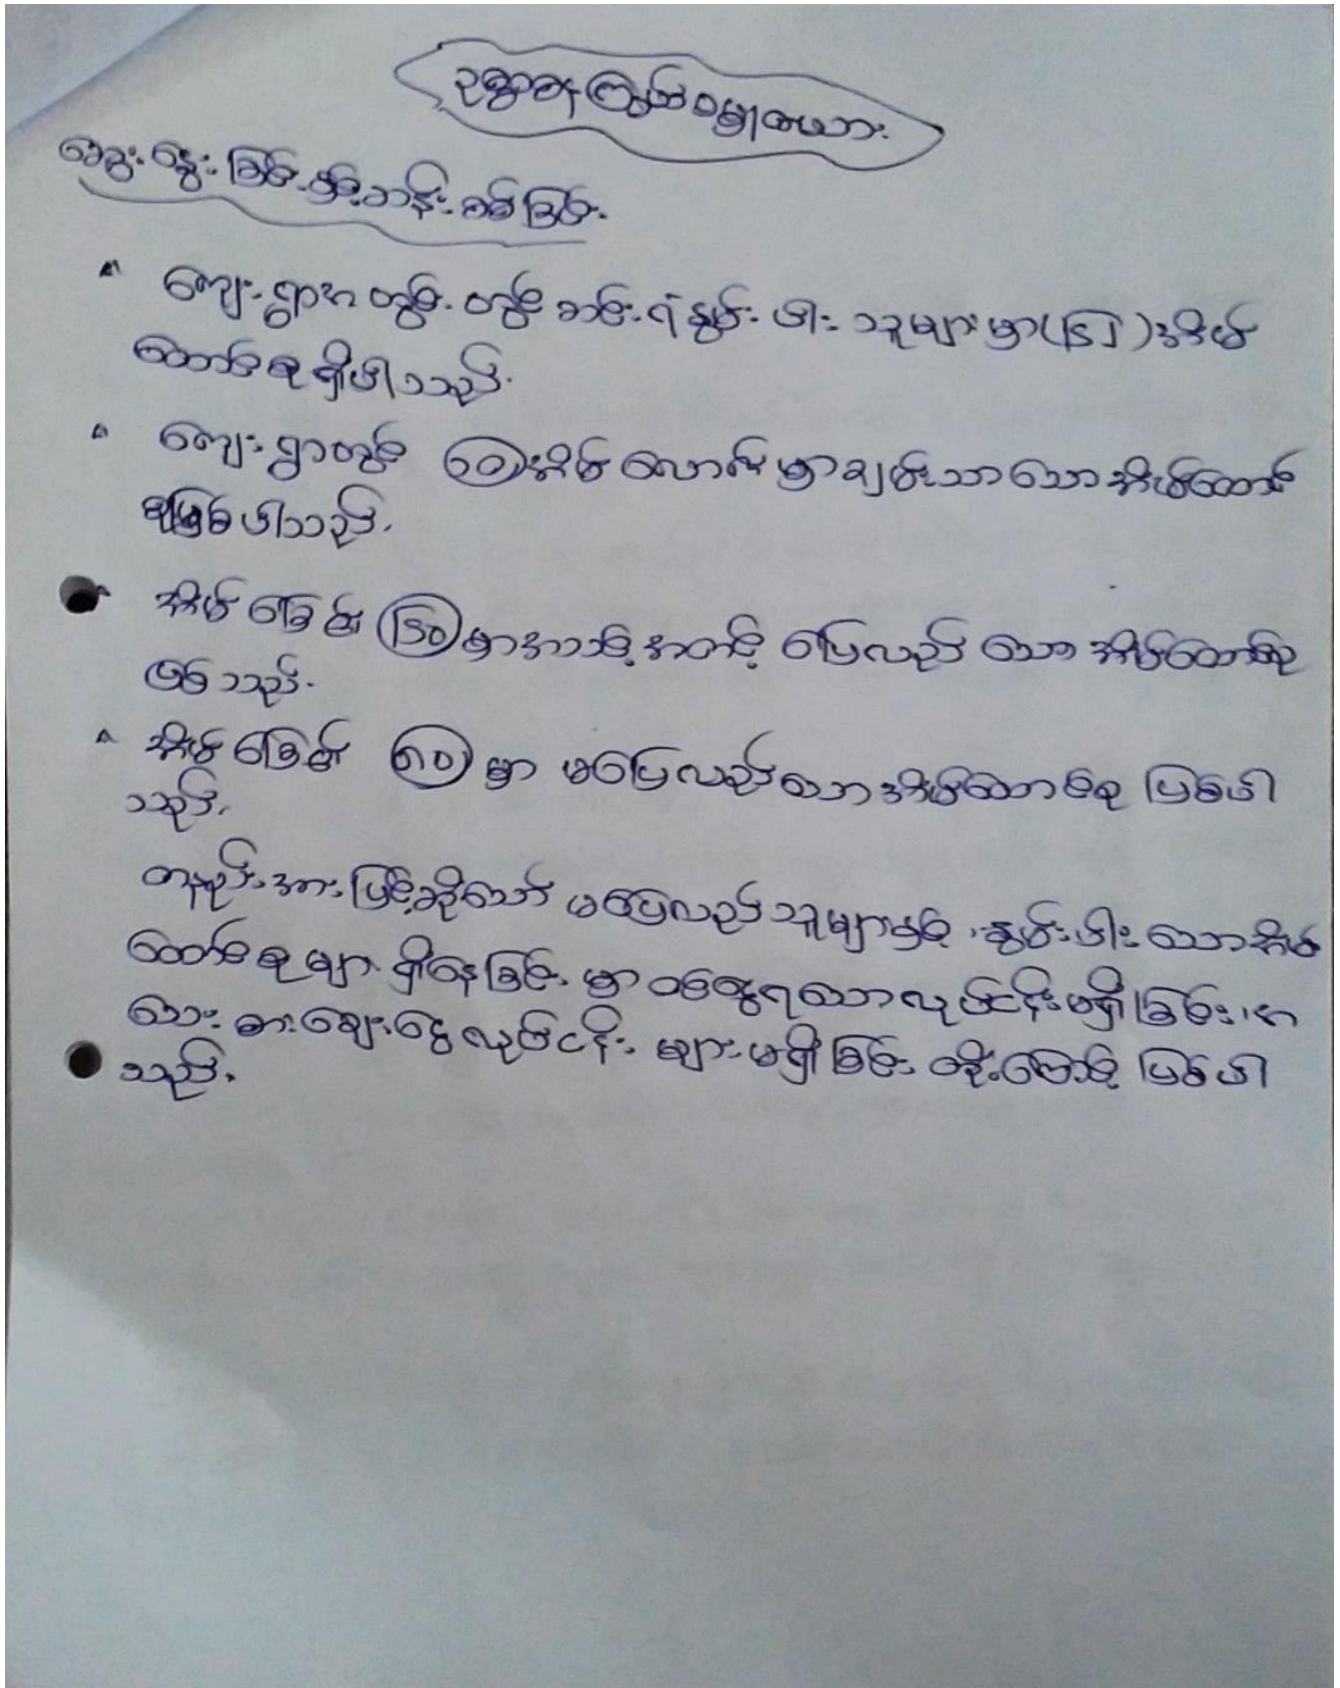 ဥစ္စာဓန ကြွယ်ဝမှုဇယား
ဆွေးနွေးခြင်းနှင့်ဆန်းစစ်ခြင်း
ကျေးရွာအတွင်းတွင် ဆင်းရဲနွမ်းပါးသူများမှာ အိမ်
ထောင်စုရှိပါသည်။
ကျေးရွာတွင် အိမ်လောက်မှာချမ်းသာသောအိမ်ထောင်
စုဖြစ်ပါသည်။
အိမ်ခြေ မှာအသင့်အတင့် ပြေလည် သော အိမ်ထောင်စု
ဖြစ်သည်။
အိမ်ခြေ မှာ မပြေလည်သောအိမ်ထောင်စု ဖြစ်ပါ
သည်။
တနည်းအားဖြင့်ဆိုသော် မပြေလည်သူများနှင့် နွမ်းပါးသောအိမ်
ထောင်စုများ ရှိနေခြင်းမှာ ဝင်ငွေရသောလုပ်ငန်းမရှိခြင်း၊ အ
သေးစားချေးငွေလုပ်ငန်းများမရှိခြင်း တို့ကြောင့် ဖြစ်ပါ
သည်။